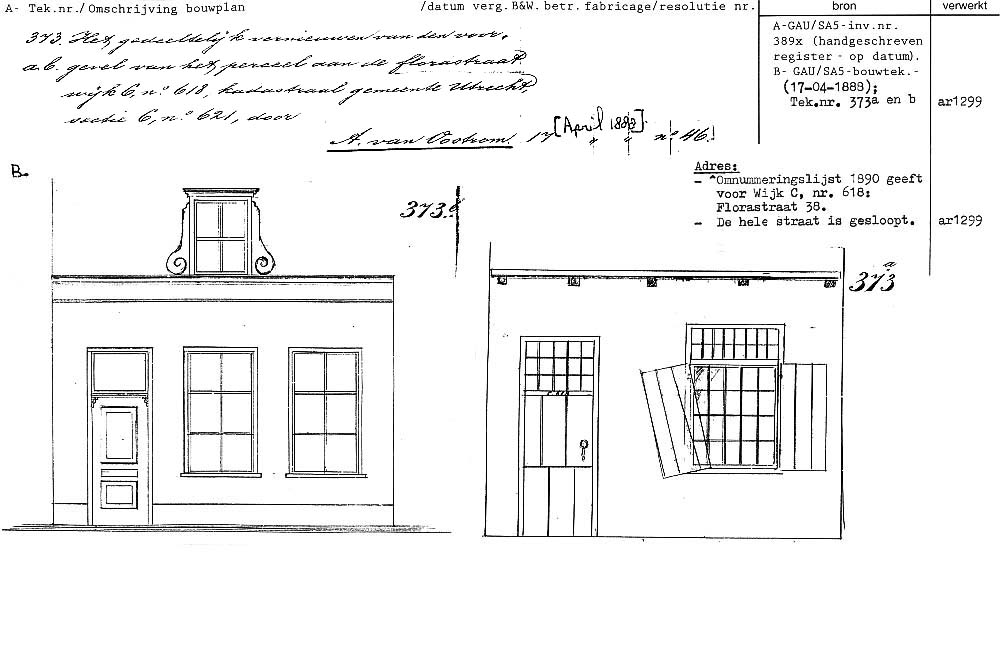 A- Tek.nr./Omschrijving bouwplan /datum verg.B&W.betr.fabricage/resolutie nr. bron verwerkt
373. Het gedeeltelijk vernieuwen van den voor-
a.b. gevel van het perceel aan de florastraat
wijk C, no 618, kadastraal gemeente Utrecht,
sectie C, no 621, door
A. van Oostrom. 17 [April 1888]. no 46.
A-GAU/SA5-inv.nr.
389x (handgeschreven
register - op datum).
B- GAU/SA5-bouwtek.-
(17-04-1888);
Tek.nr. 373a en b ar1299
Adres:
- "Omnummeringslijst 1890 geeft
voor Wijk C, nr. 618:
Florastraat 38.
- De hele straat is gesloopt. ar1299
B.
373.b
373a